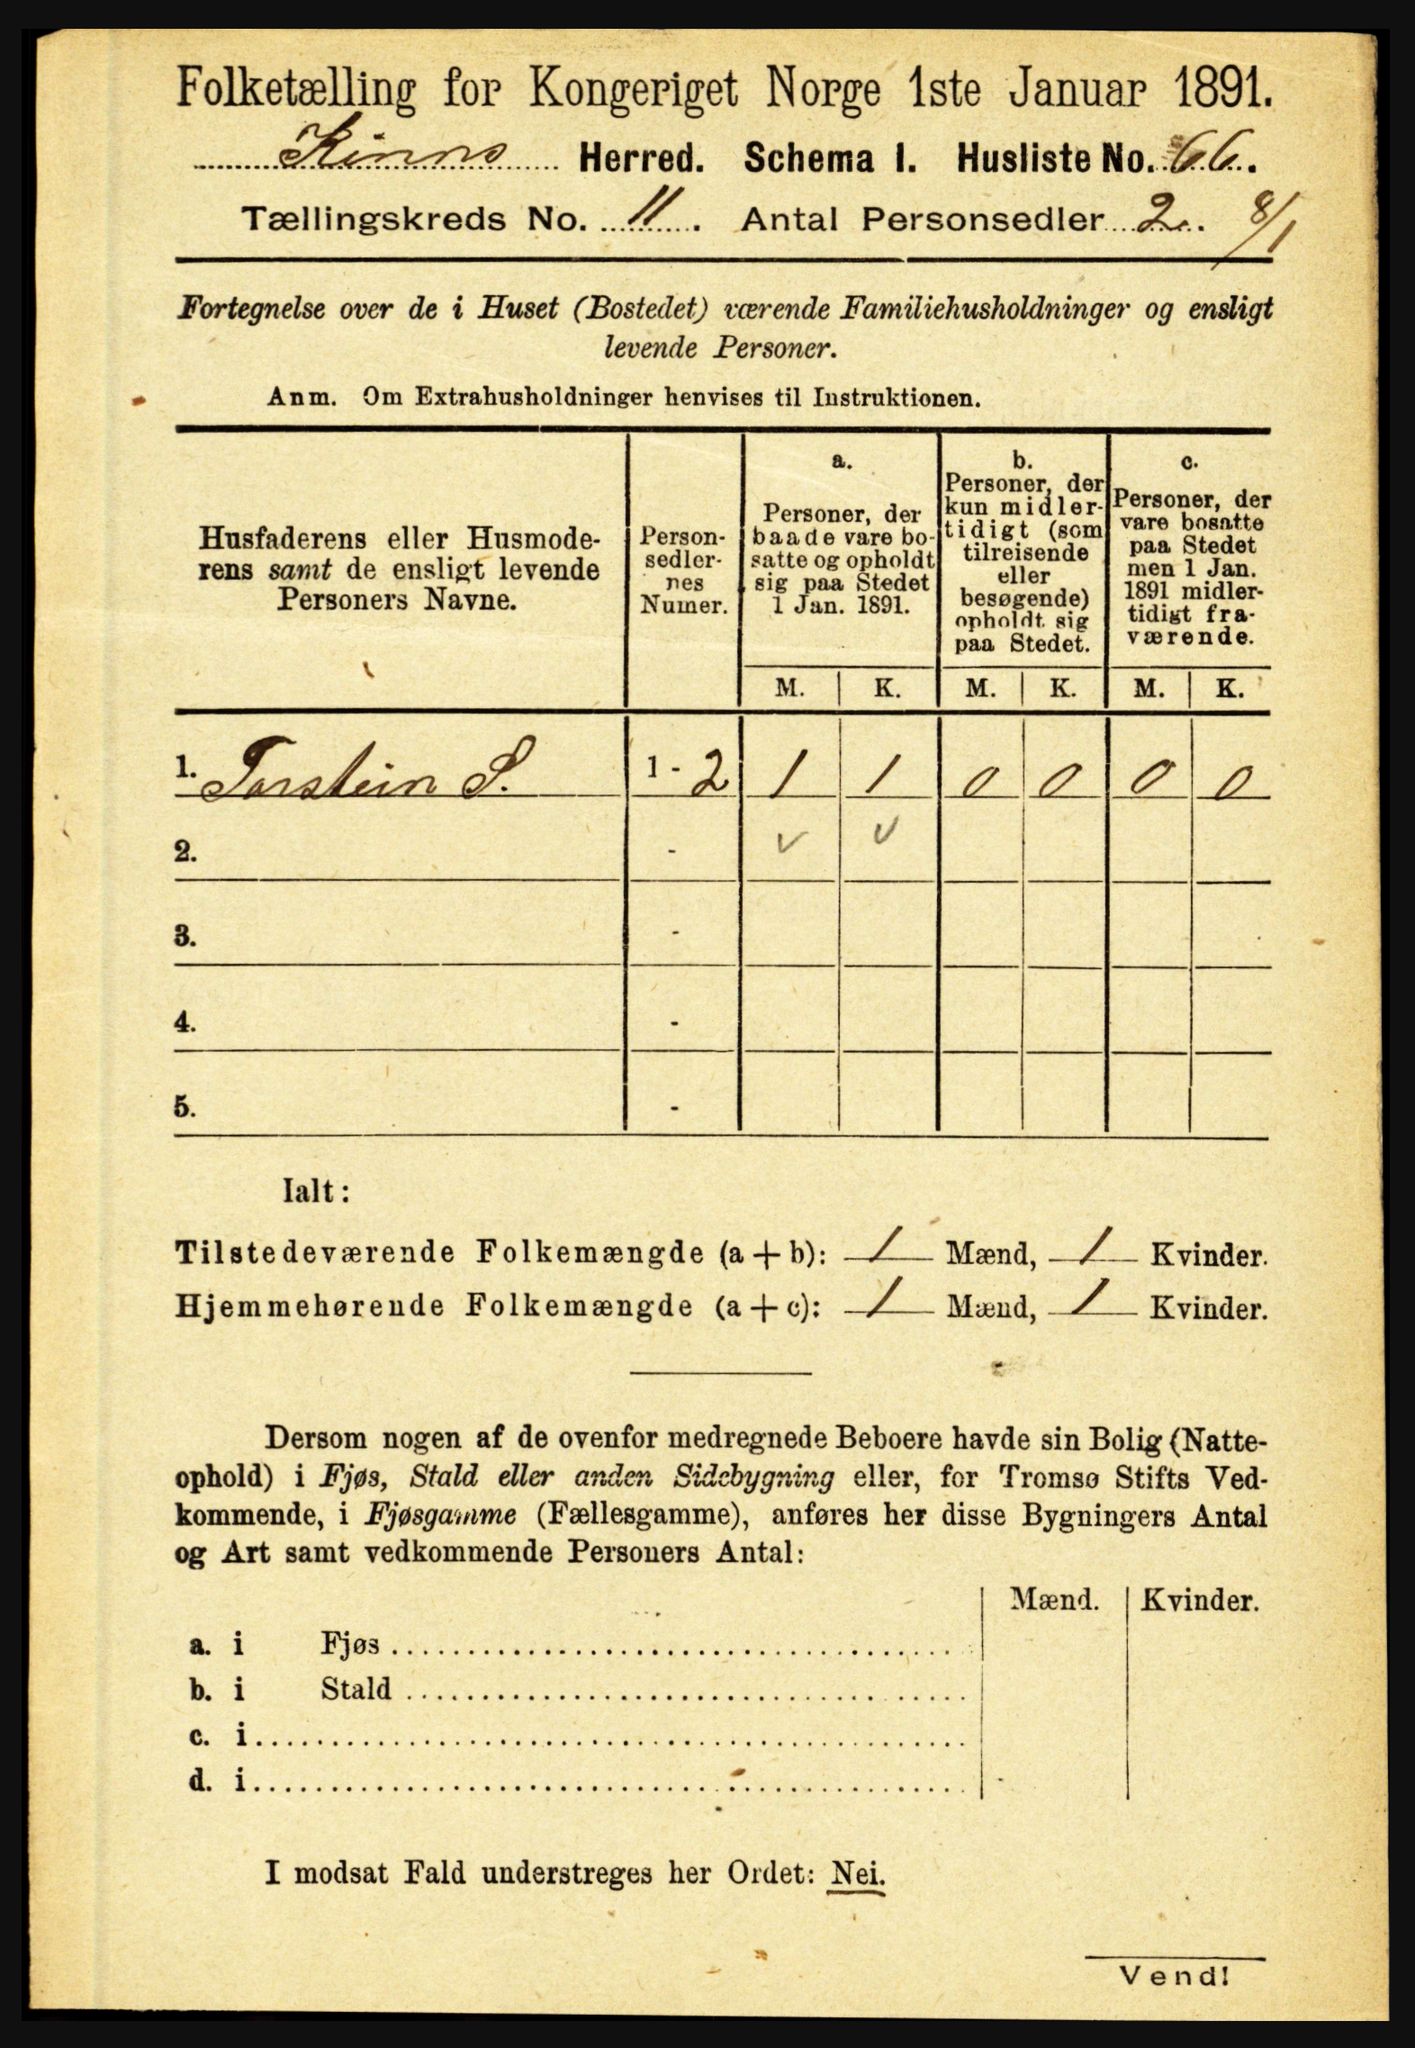 Folketælling for Kongeriget Norge 1ste Januar 1891.
Kinns Herred. Schema I. Husliste No. 66.
Tællingskreds No. 11. Antal Personsedler 2. 8/1
Fortegnelse over de i Huset (Bostedet) værende Familiehusholdninger og ensligt
levende Personer.
Anm. Om Extrahusholdninger henvises til Instruktionen.
Husfaderens eller Husmode-
rens samt de ensligt levende
Personers Navne.
Person-
sedler-
nes
Numer.
a.
Personer, der
baade vare bo-
satte og opholdt
sig paa Stedet
1 Jan. 1891.
b.
Personer, der
kun midler-
tidigt (som
tilreisende
eller
besøgende)
opholdt sig
paa Stedet.
c.
Personer, der
vare bosatte
paa Stedet
men 1 Jan.
1891 midler-
tidigt fra-
værende.
M. K. M. K. M. K.
1. Torstein S. 1 - 2 1 1 0 0 0 0
2. - v v
3. -
4. -
5. -
Ialt:
Tilstedeværende Folkemængde (a + b): 1 Mænd, 1 Kvinder.
Hjemmehørende Folkemængde (a + c): 1 Mænd, 1 Kvinder.
Dersom nogen af de ovenfor medregnede Beboere havde sin Bolig (Natte-
ophold) i Fjøs, Stald eller anden Sidebygning eller, for Tromsø Stifts Ved-
kommende, i Fjøsgamme (Fællesgamme), anføres her disse Bygningers Antal
og Art samt vedkommende Personers Antal:
Mænd. Kvinder.
a. i Fjøs
b. i Stald
c. i
d. i
I modsat Fald understreges her Ordet: Nei.
Vend!